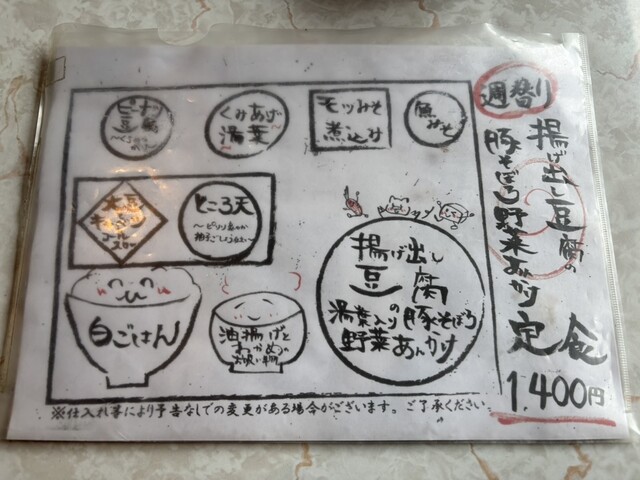 週替り
揚げ出し豆腐の
豚そぼろ野菜あんかけ
定食
1,400円
ピーナツ
豆腐
くみあげ
湯葉
モツみそ
煮込み
魚みそ
大豆
キャベツ
コールスロー
ところ天
揚げ出し
豆腐
湯葉入りの豚そぼろ
野菜あんかけ
白ごはん
油揚げと
わかめの
お吸い物
※仕入れ等により予告なしでの変更がある場合がございます。ご了承ください